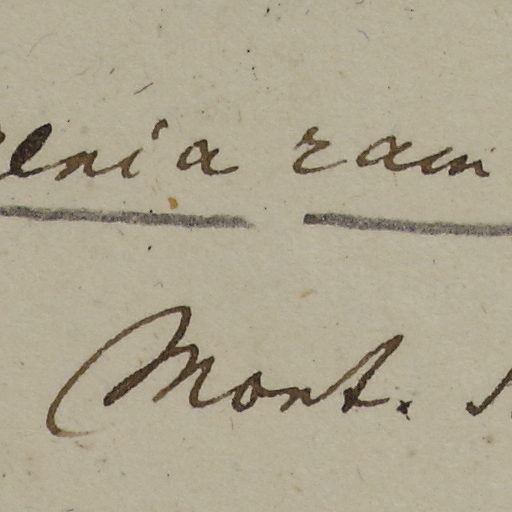 enia ram
Mont.